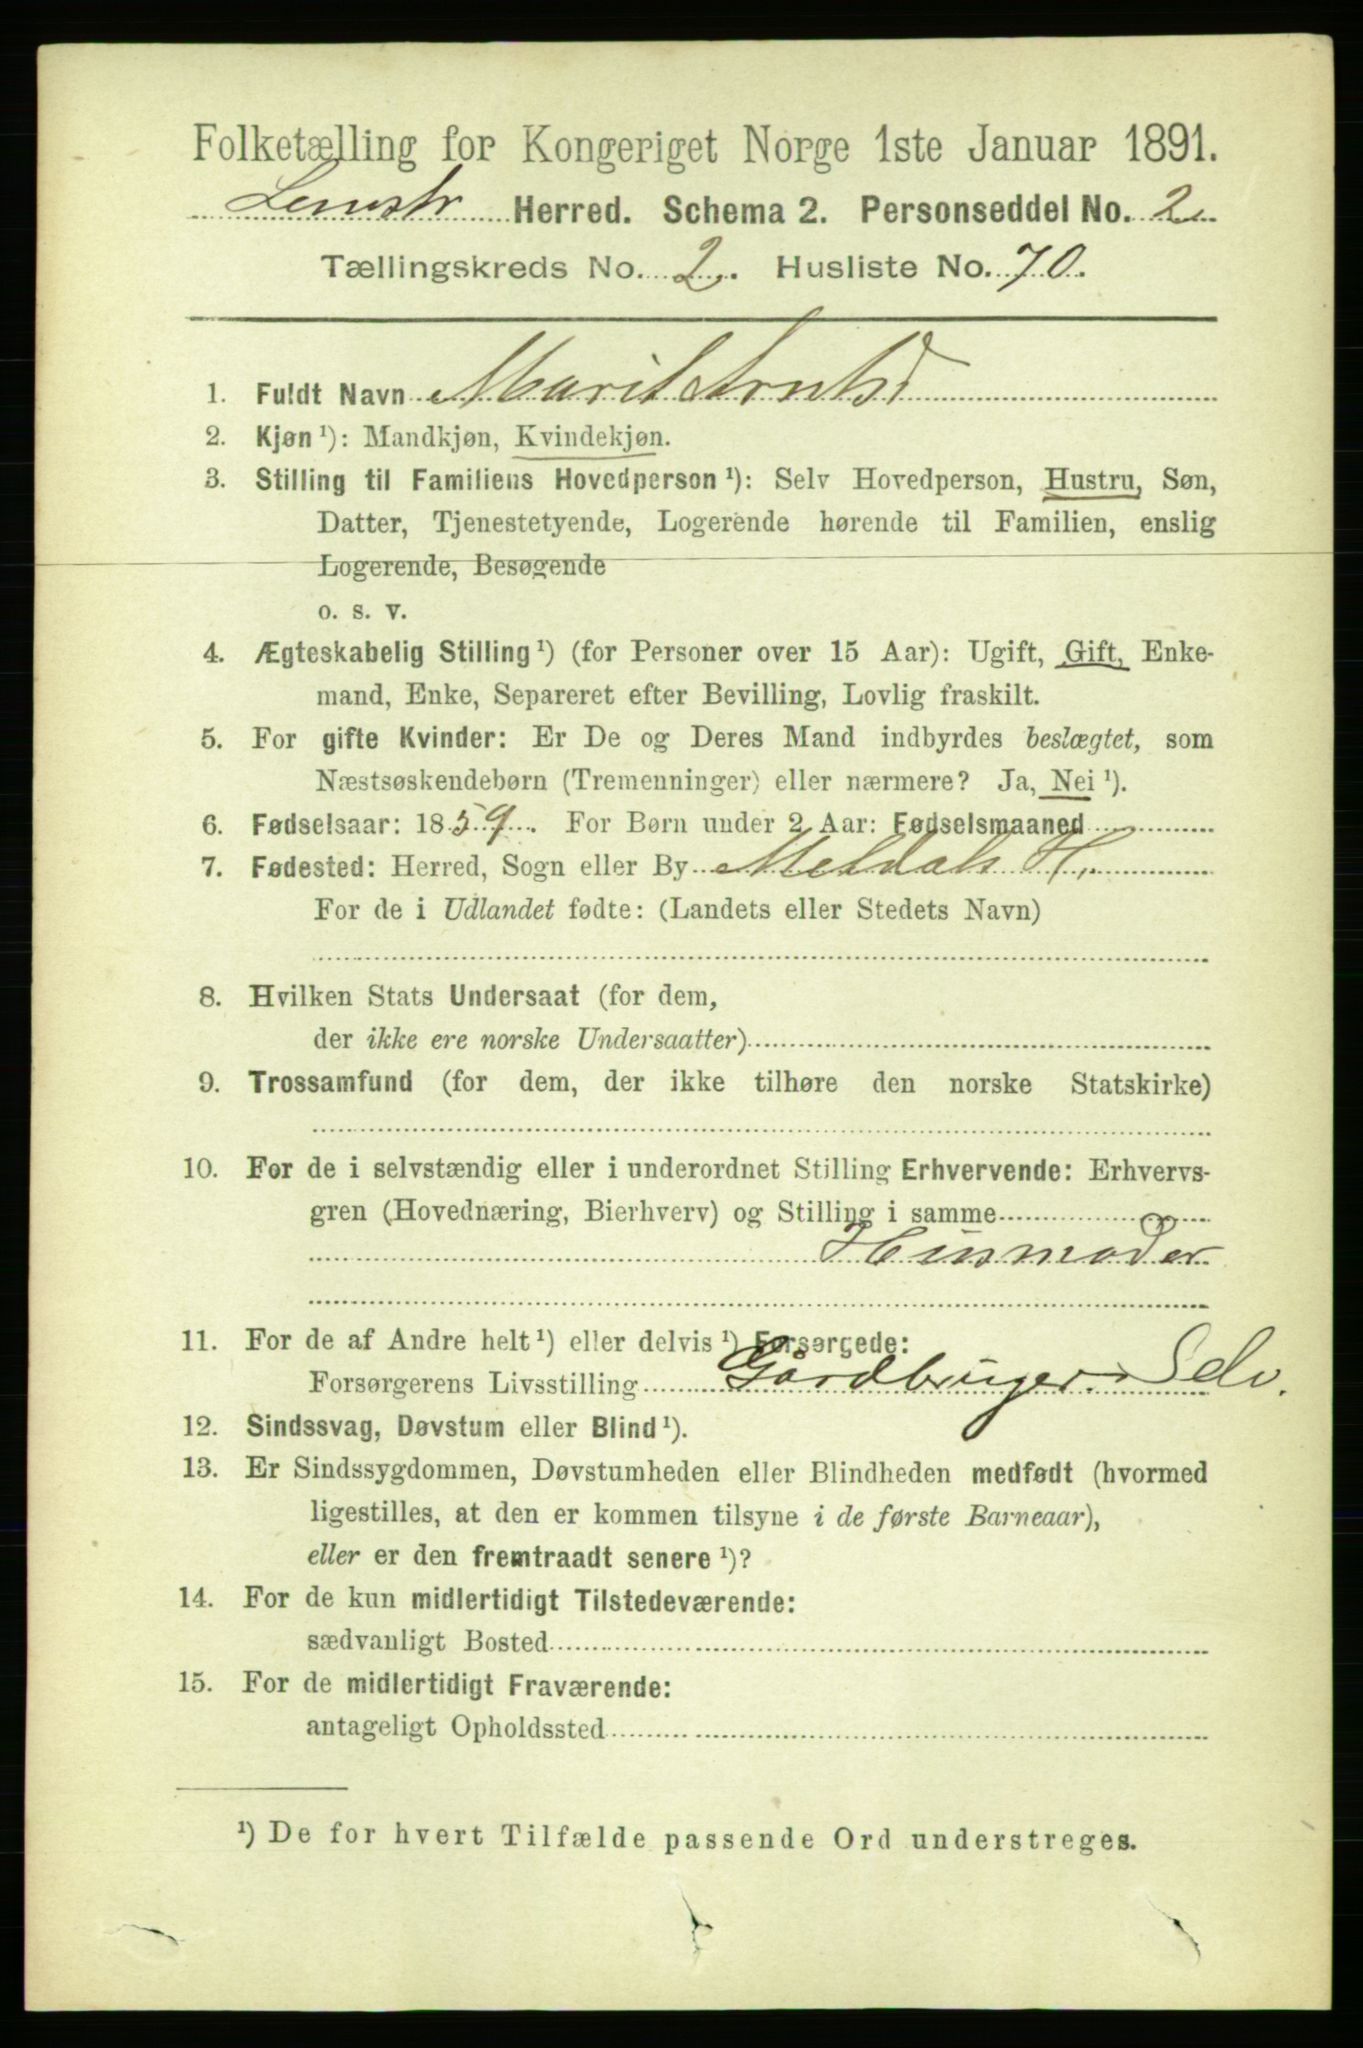 Folketælling for Kongeriget Norge 1ste Januar 1891.
Herred. Schema 2. Personseddel No. 2.
Tællingskreds No. 2. Husliste No. 70.
1. Fuldt Navn Marit Arntsd
2. Kjøn ¹): Mandkjøn, Kvindekjøn.
3. Stilling til Familiens Hovedperson ¹): Selv Hovedperson, Hustru, Søn,
Datter, Tjenestetyende, Logerende hørende til Familien, enslig
Logerende, Besøgende
o. s. v.
4. Ægteskabelig Stilling ¹) (for Personer over 15 Aar): Ugift, Gift, Enke-
mand, Enke, Separeret efter Bevilling, Lovlig fraskilt.
5. For gifte Kvinder: Er De og Deres Mand indbyrdes beslægtet, som
Næstsøskendebørn (Tremenninger) eller nærmere? Ja, Nei ¹).
6. Fødselsaar: 1859. For Børn under 2 Aar: Fødselsmaaned
7. Fødested: Herred, Sogn eller By Meldals H.
For de i Udlandet fødte: (Landets eller Stedets Navn)
8. Hvilken Stats Undersaat (for dem,
der ikke ere norske Undersaatter)
9. Trossamfund (for dem, der ikke tilhøre den norske Statskirke)
10. For de i selvstændig eller i underordnet Stilling Erhvervende: Erhvervs-
gren (Hovednæring, Bierhverv) og Stilling i samme
Husmoder
11. For de af Andre helt ¹) eller delvis ¹) Forsørgede:
Forsørgerens Livsstilling Gårdbruger. Selv.
12. Sindssvag, Døvstum eller Blind ¹).
13. Er Sindssygdommen, Døvstumheden eller Blindheden medfødt (hvormed
ligestilles, at den er kommen tilsyne i de første Barneaar),
eller er den fremtraadt senere ¹)?
14. For de kun midlertidigt Tilstedeværende:
sædvanligt Bosted
15. For de midlertidigt Fraværende:
antageligt Opholdssted
¹) De for hvert Tilfælde passende Ord understreges.